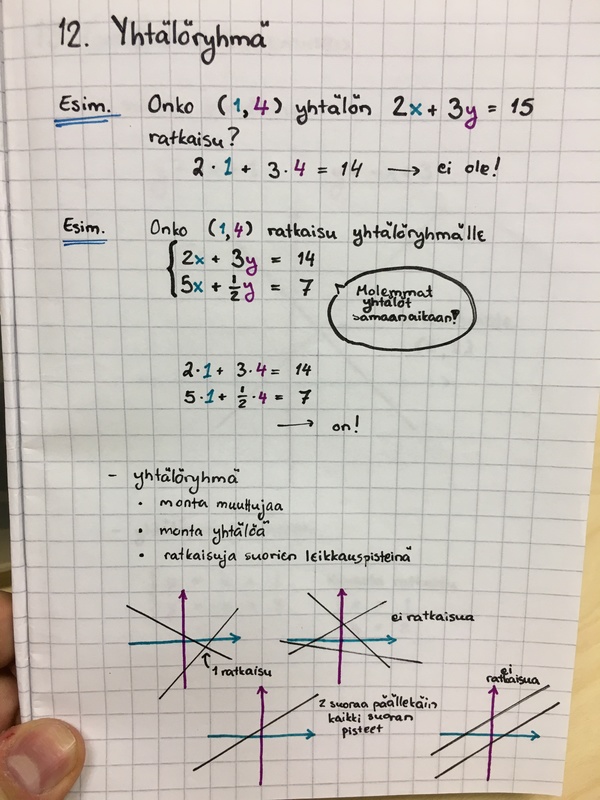 12. Yhtälöryhmä
Esim. Onko (1,4) yhtälön 2x + 3y = 15
ratkaisu?
2 · 1 + 3 · 4 = 14 → ei ole!
Esim. Onko (1,4) ratkaisu yhtälöryhmälle
{ 2x + 3y = 14
5x + 1/2 y = 7
Molemmat
yhtälöt
samaan aikaan!
2 · 1 + 3 · 4 = 14
5 · 1 + 1/2 · 4 = 7
→ on!
- yhtälöryhmä
• monta muuttujaa
• monta yhtälöä
• ratkaisuja suorien leikkauspisteinä
1 ratkaisu
ei ratkaisua
2 suoraa päällekäin
kaikki suoran
pisteet
ei
ratkaisua